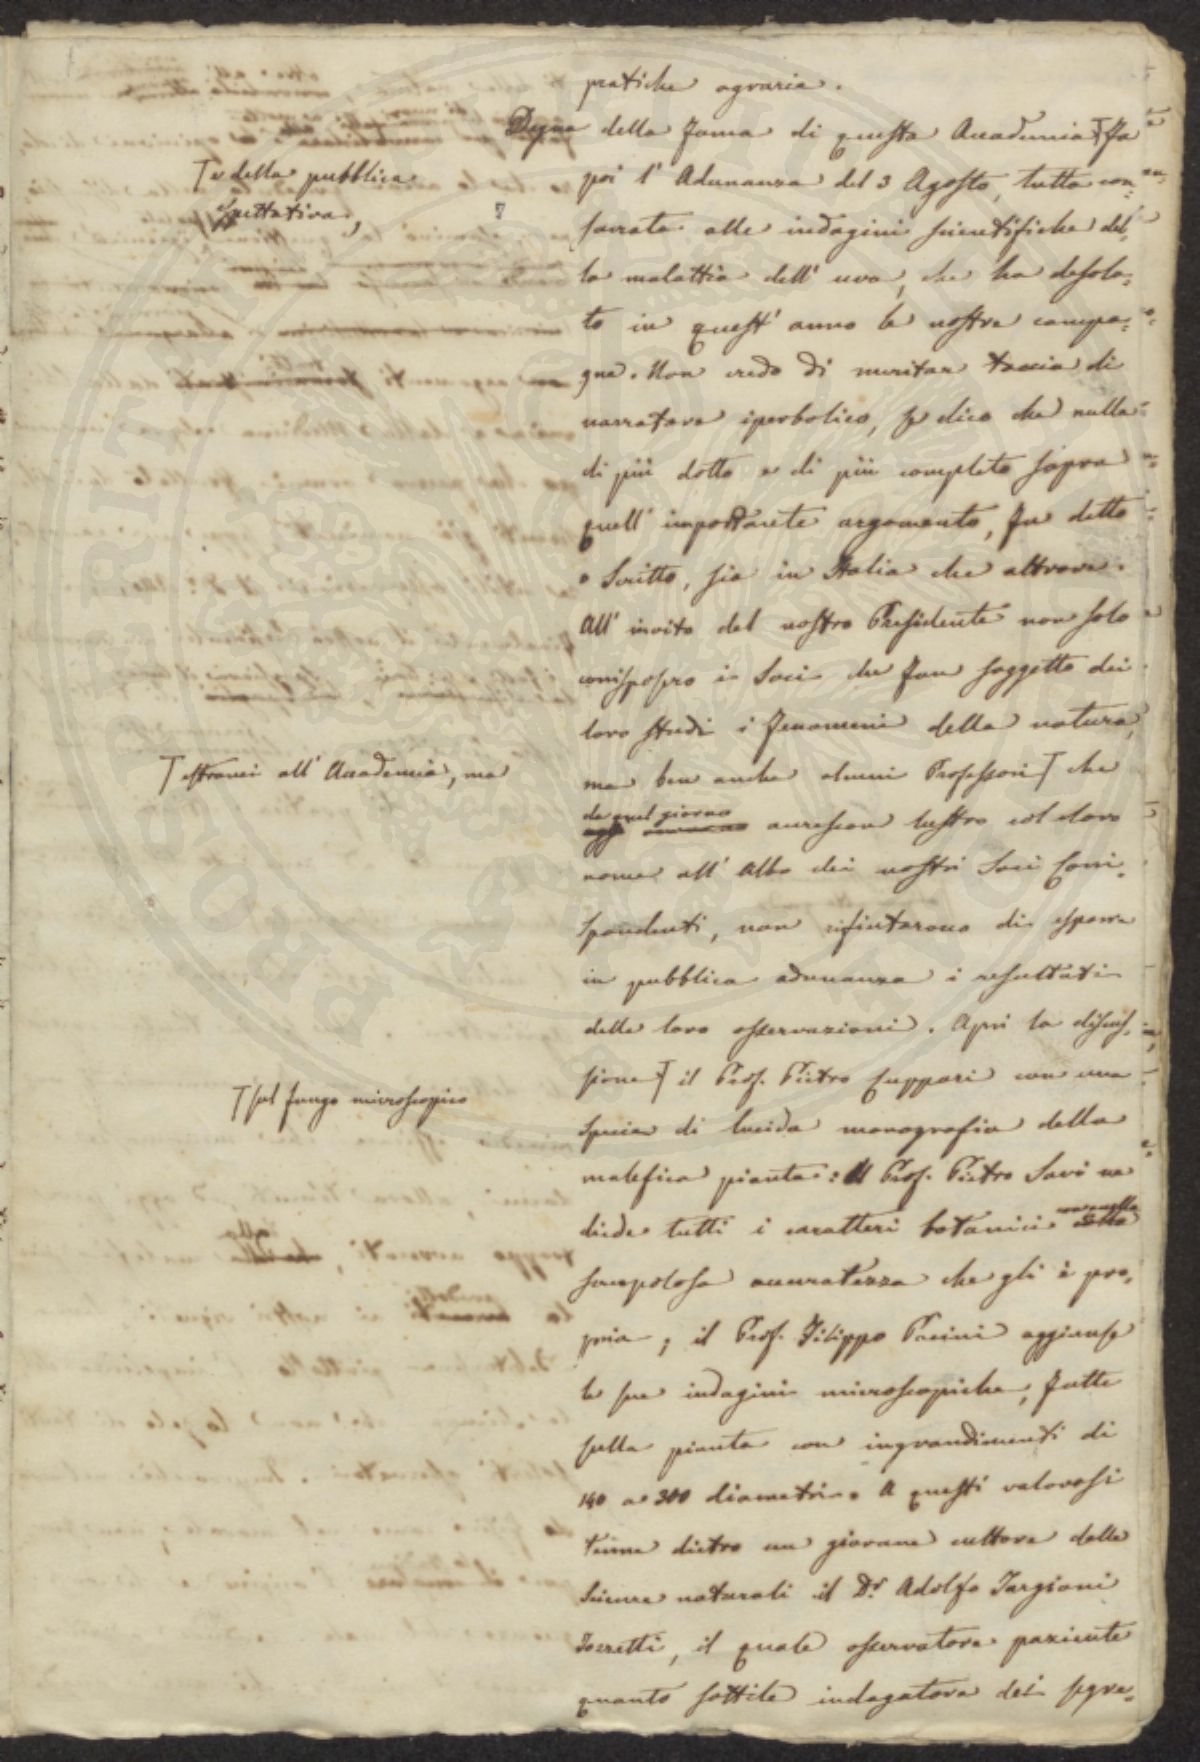 pratiche agrarie.
Degna della fama di questa Accademia T fu
T e della pubblica
spettativa,
poi l'Adunanza del 3 Agosto, tutta con=
sacrata alle indagini scientifiche del=
la malattia dell'uva, che ha desola=
to in quest'anno le nostre campa=
gne. Non credo di meritar taccia di
narratore iperbolico, se dico che nulla
di più dotto e di più completo sopra
quell'importante argomento, fu detto
o scritto, sia in Italia che altrove.
All'invito del nostro Presidente non solo
corrisposero i Soci che fan soggetto dei
loro studi i fenomeni della natura,
T estranei all'Accademia, ma
ma ben anche alcuni Professori T che
da quel giorno
accrescon lustro col loro
nome all'Albo dei nostri Soci Corri=
spondenti, non rifiutarono di esporre
in pubblica adunanza i resultati
delle loro osservazioni. Aprì la discus=
T sul fungo microscopico
sione T il Prof. Pietro Cuppari con una
specie di lucida monografia della
malefica pianta: Il Prof. Pietro Savi ne
diede tutti i caratteri botanici con quella
scrupolosa accuratezza che gli è pro=
pria; il Prof. Filippo Pacini aggiunse
le sue indagini microscopiche, fatte
sulla pianta con ingrandimenti di
140 a 300 diametri. A questi valorosi
tenne dietro un giovane cultore delle
Scienze naturali il Dr. Adolfo Targioni
Tozzetti, il quale osservatore paziente
quanto sottile indagatore dei segre=